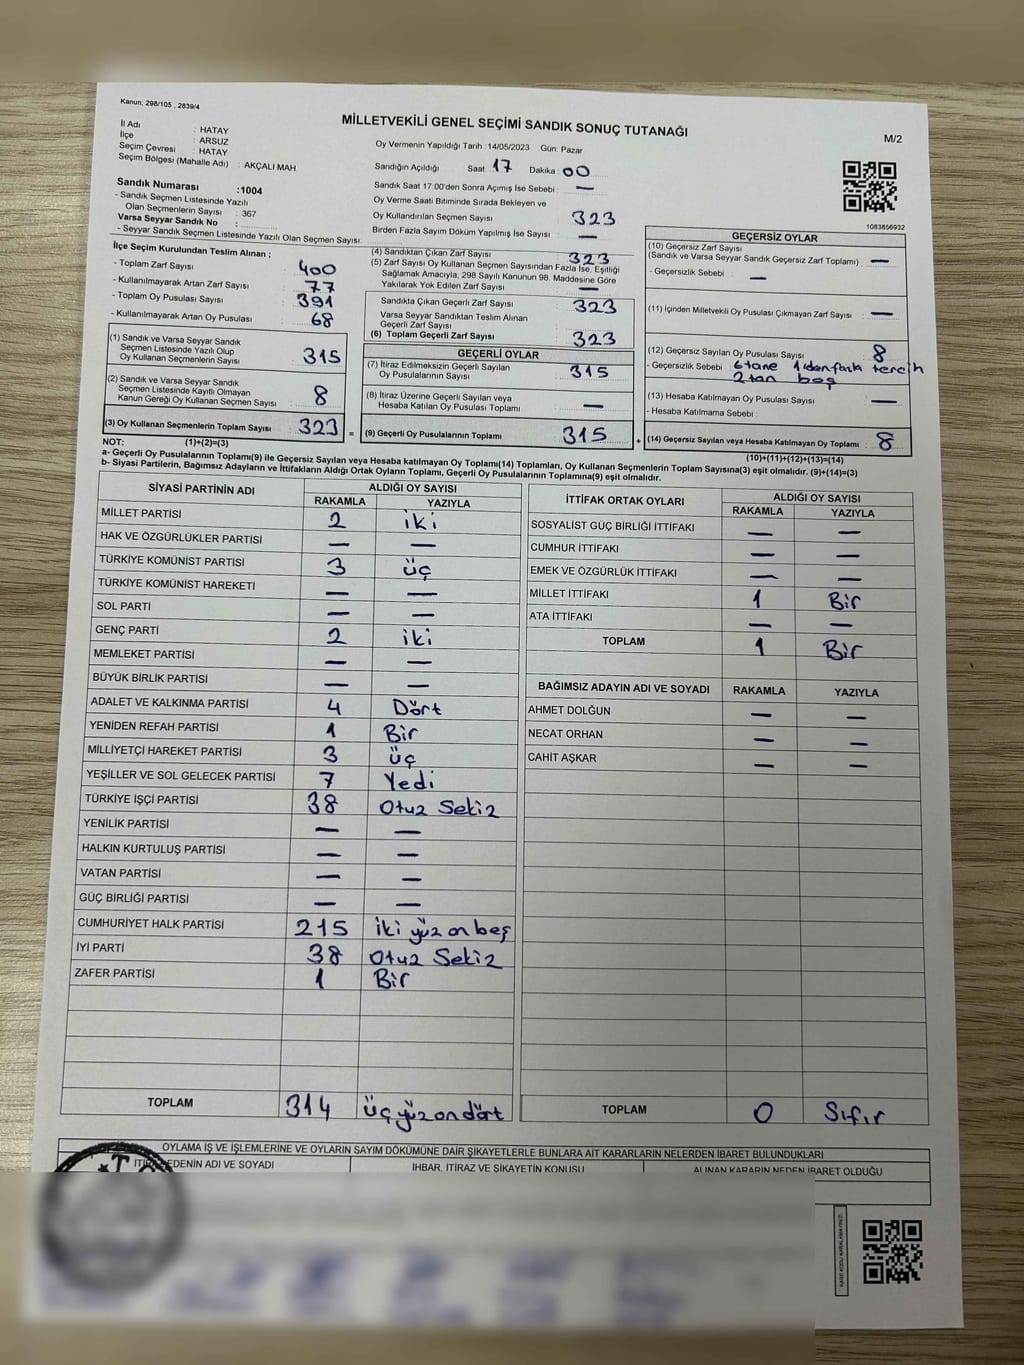 Kanun; 298/105 , 2839/4
MİLLETVEKİLİ GENEL SEÇİMİ SANDIK SONUÇ TUTANAĞI
M/2
İl Adı : HATAY
İlçe : ARSUZ
Seçim Çevresi : HATAY
Seçim Bölgesi (Mahalle Adı) : AKÇALI MAH.
Oy Vermenin Yapıldığı Tarih :14/05/2023 Gün: Pazar
Sandığın Açıldığı Saat: 17 Dakika: 00
Sandık Saat 17:00'den Sonra Açımış İse Sebebi : —
Oy Verme Saati Bitiminde Sırada Bekleyen ve
Oy Kullandırılan Seçmen Sayısı 323
Birden Fazla Sayım Döküm Yapılmış İse Sayısı —
Sandık Numarası :1004
- Sandık Seçmen Listesinde Yazılı
Olan Seçmenlerin Sayısı : 367
Varsa Seyyar Sandık No :
- Seyyar Sandık Seçmen Listesinde Yazılı Olan Seçmen Sayısı:
1083856932
İlçe Seçim Kurulundan Teslim Alınan ;
- Toplam Zarf Sayısı : 400
- Kullanılmayarak Artan Zarf Sayısı : 77
- Toplam Oy Pusulası Sayısı : 391
- Kullanılmayarak Artan Oy Pusulası : 68
(1) Sandık ve Varsa Seyyar Sandık
Seçmen Listesinde Yazılı Olup
Oy Kullanan Seçmenlerin Sayısı : 315
(2) Sandık ve Varsa Seyyar Sandık
Seçmen Listesinde Kayıtlı Olmayan
Kanun Gereği Oy Kullanan Seçmen Sayısı 8
(3) Oy Kullanan Seçmenlerin Toplam Sayısı : 323 =
(4) Sandıktan Çıkan Zarf Sayısı 323
(5) Zarf Sayısı Oy Kullanan Seçmen Sayısından Fazla İse, Eşitliği
Sağlamak Amacıyla, 298 Sayılı Kanunun 98. Maddesine Göre
Yakılarak Yok Edilen Zarf Sayısı : —
Sandıkta Çıkan Geçerli Zarf Sayısı 323
Varsa Seyyar Sandıktan Teslim Alınan
Geçerli Zarf Sayısı
(6) Toplam Geçerli Zarf Sayısı : 323
GEÇERLİ OYLAR
(7) İtiraz Edilmeksizin Geçerli Sayılan
Oy Pusulalarının Sayısı : 315
(8) İtiraz Üzerine Geçerli Sayılan veya
Hesaba Katılan Oy Pusulası Toplamı : —
(9) Geçerli Oy Pusulalarının Toplamı : 315 +
GEÇERSİZ OYLAR
(10) Geçersiz Zarf Sayısı
(Sandık ve Varsa Seyyar Sandık Geçersiz Zarf Toplamı) : —
- Geçersizlik Sebebi : —
(11) İçinden Milletvekili Oy Pusulası Çıkmayan Zarf Sayısı : —
(12) Geçersiz Sayılan Oy Pusulası Sayısı : 8
- Geçersizlik Sebebi : 6 tane 1 den fazla tercih
2 tan boş
(13) Hesaba Katılmayan Oy Pusulası Sayısı : —
- Hesaba Katılmama Sebebi :
(14) Geçersiz Sayılan veya Hesaba Katılmayan Oy Toplamı : 8
NOT: (1)+(2)=(3)
(10)+(11)+(12)+(13)=(14)
a- Geçerli Oy Pusulalarının Toplamı(9) ile Geçersiz Sayılan veya Hesaba katılmayan Oy Toplamı(14) Toplamları, Oy Kullanan Seçmenlerin Toplam Sayısına(3) eşit olmalıdır. (9)+(14)=(3)
b- Siyasi Partilerin, Bağımsız Adayların ve İttifakların Aldığı Ortak Oyların Toplamı, Geçerli Oy Pusulalarının Toplamına(9) eşit olmalıdır.
SİYASİ PARTİNİN ADI ALDIĞI OY SAYISI
RAKAMLA YAZIYLA
MİLLET PARTİSİ 2 iki
HAK VE ÖZGÜRLÜKLER PARTİSİ — —
TÜRKİYE KOMÜNİST PARTİSİ 3 üç
TÜRKİYE KOMÜNİST HAREKETİ — —
SOL PARTİ — —
GENÇ PARTİ 2 iki
MEMLEKET PARTİSİ — —
BÜYÜK BİRLİK PARTİSİ — —
ADALET VE KALKINMA PARTİSİ 4 Dört
YENİDEN REFAH PARTİSİ 1 Bir
MİLLİYETÇİ HAREKET PARTİSİ 3 üç
YEŞİLLER VE SOL GELECEK PARTİSİ 7 Yedi
TÜRKİYE İŞÇİ PARTİSİ 38 Otuz Sekiz
YENİLİK PARTİSİ — —
HALKIN KURTULUŞ PARTİSİ — —
VATAN PARTİSİ — —
GÜÇ BİRLİĞİ PARTİSİ — —
CUMHURİYET HALK PARTİSİ 215 iki yüz on beş
İYİ PARTİ 38 Otuz Sekiz
ZAFER PARTİSİ 1 Bir
TOPLAM 314 üç yüz on dört
İTTİFAK ORTAK OYLARI ALDIĞI OY SAYISI
RAKAMLA YAZIYLA
SOSYALİST GÜÇ BİRLİĞİ İTTİFAKI — —
CUMHUR İTTİFAKI — —
EMEK VE ÖZGÜRLÜK İTTİFAKI — —
MİLLET İTTİFAKI 1 Bir
ATA İTTİFAKI — —
TOPLAM 1 Bir
BAĞIMSIZ ADAYIN ADI VE SOYADI RAKAMLA YAZIYLA
AHMET DOLĞUN — —
NECAT ORHAN — —
CAHİT AŞKAR — —
TOPLAM 0 Sıfır
OYLAMA İŞ VE İŞLEMLERİNE VE OYLARIN SAYIM DÖKÜMÜNE DAİR ŞİKAYETLERLE BUNLARA AİT KARARLARIN NELERDEN İBARET BULUNDUKLARI
İTİRAZ EDENİN ADI VE SOYADI İHBAR, İTİRAZ VE ŞİKAYETİN KONUSU ALINAN KARARIN NEDEN İBARET OLDUĞU